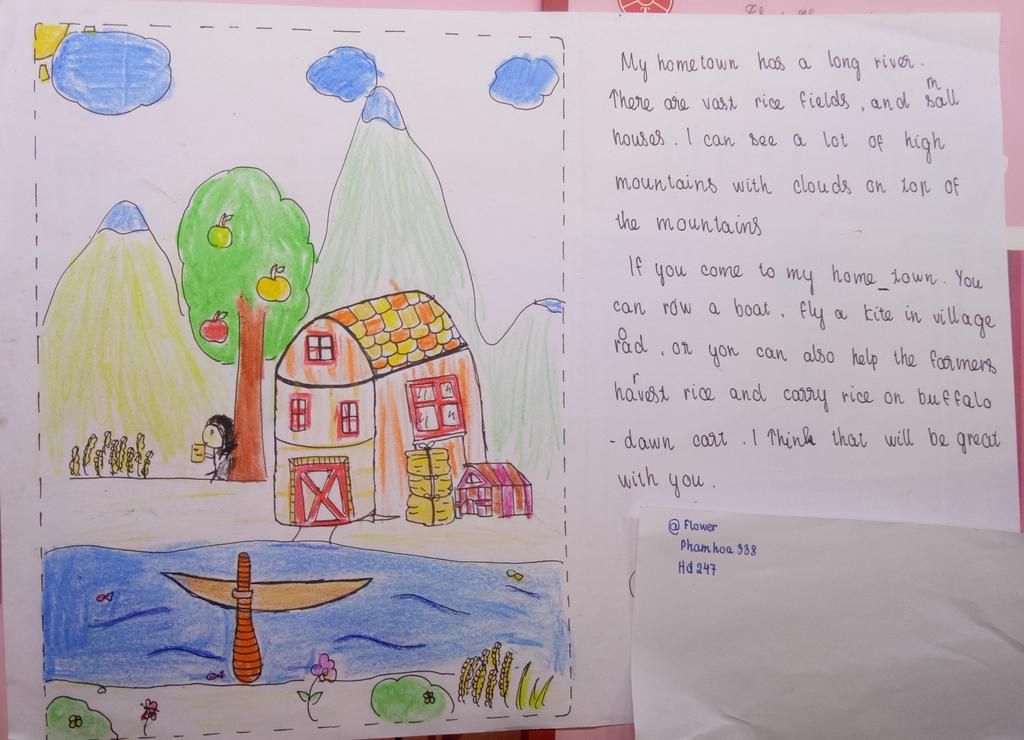 My hometown has a long river.
There are vast rice fields, and small
houses. I can see a lot of high
mountains with clouds on top of
the mountains
If you come to my home_town. You
can row a boat, fly a kite in village
road, or you can also help the farmers
harvest rice and carry rice on buffalo
-dawn cart. I Think that will be great
with you.
@ Flower
Phamhoa 338
Hd 247